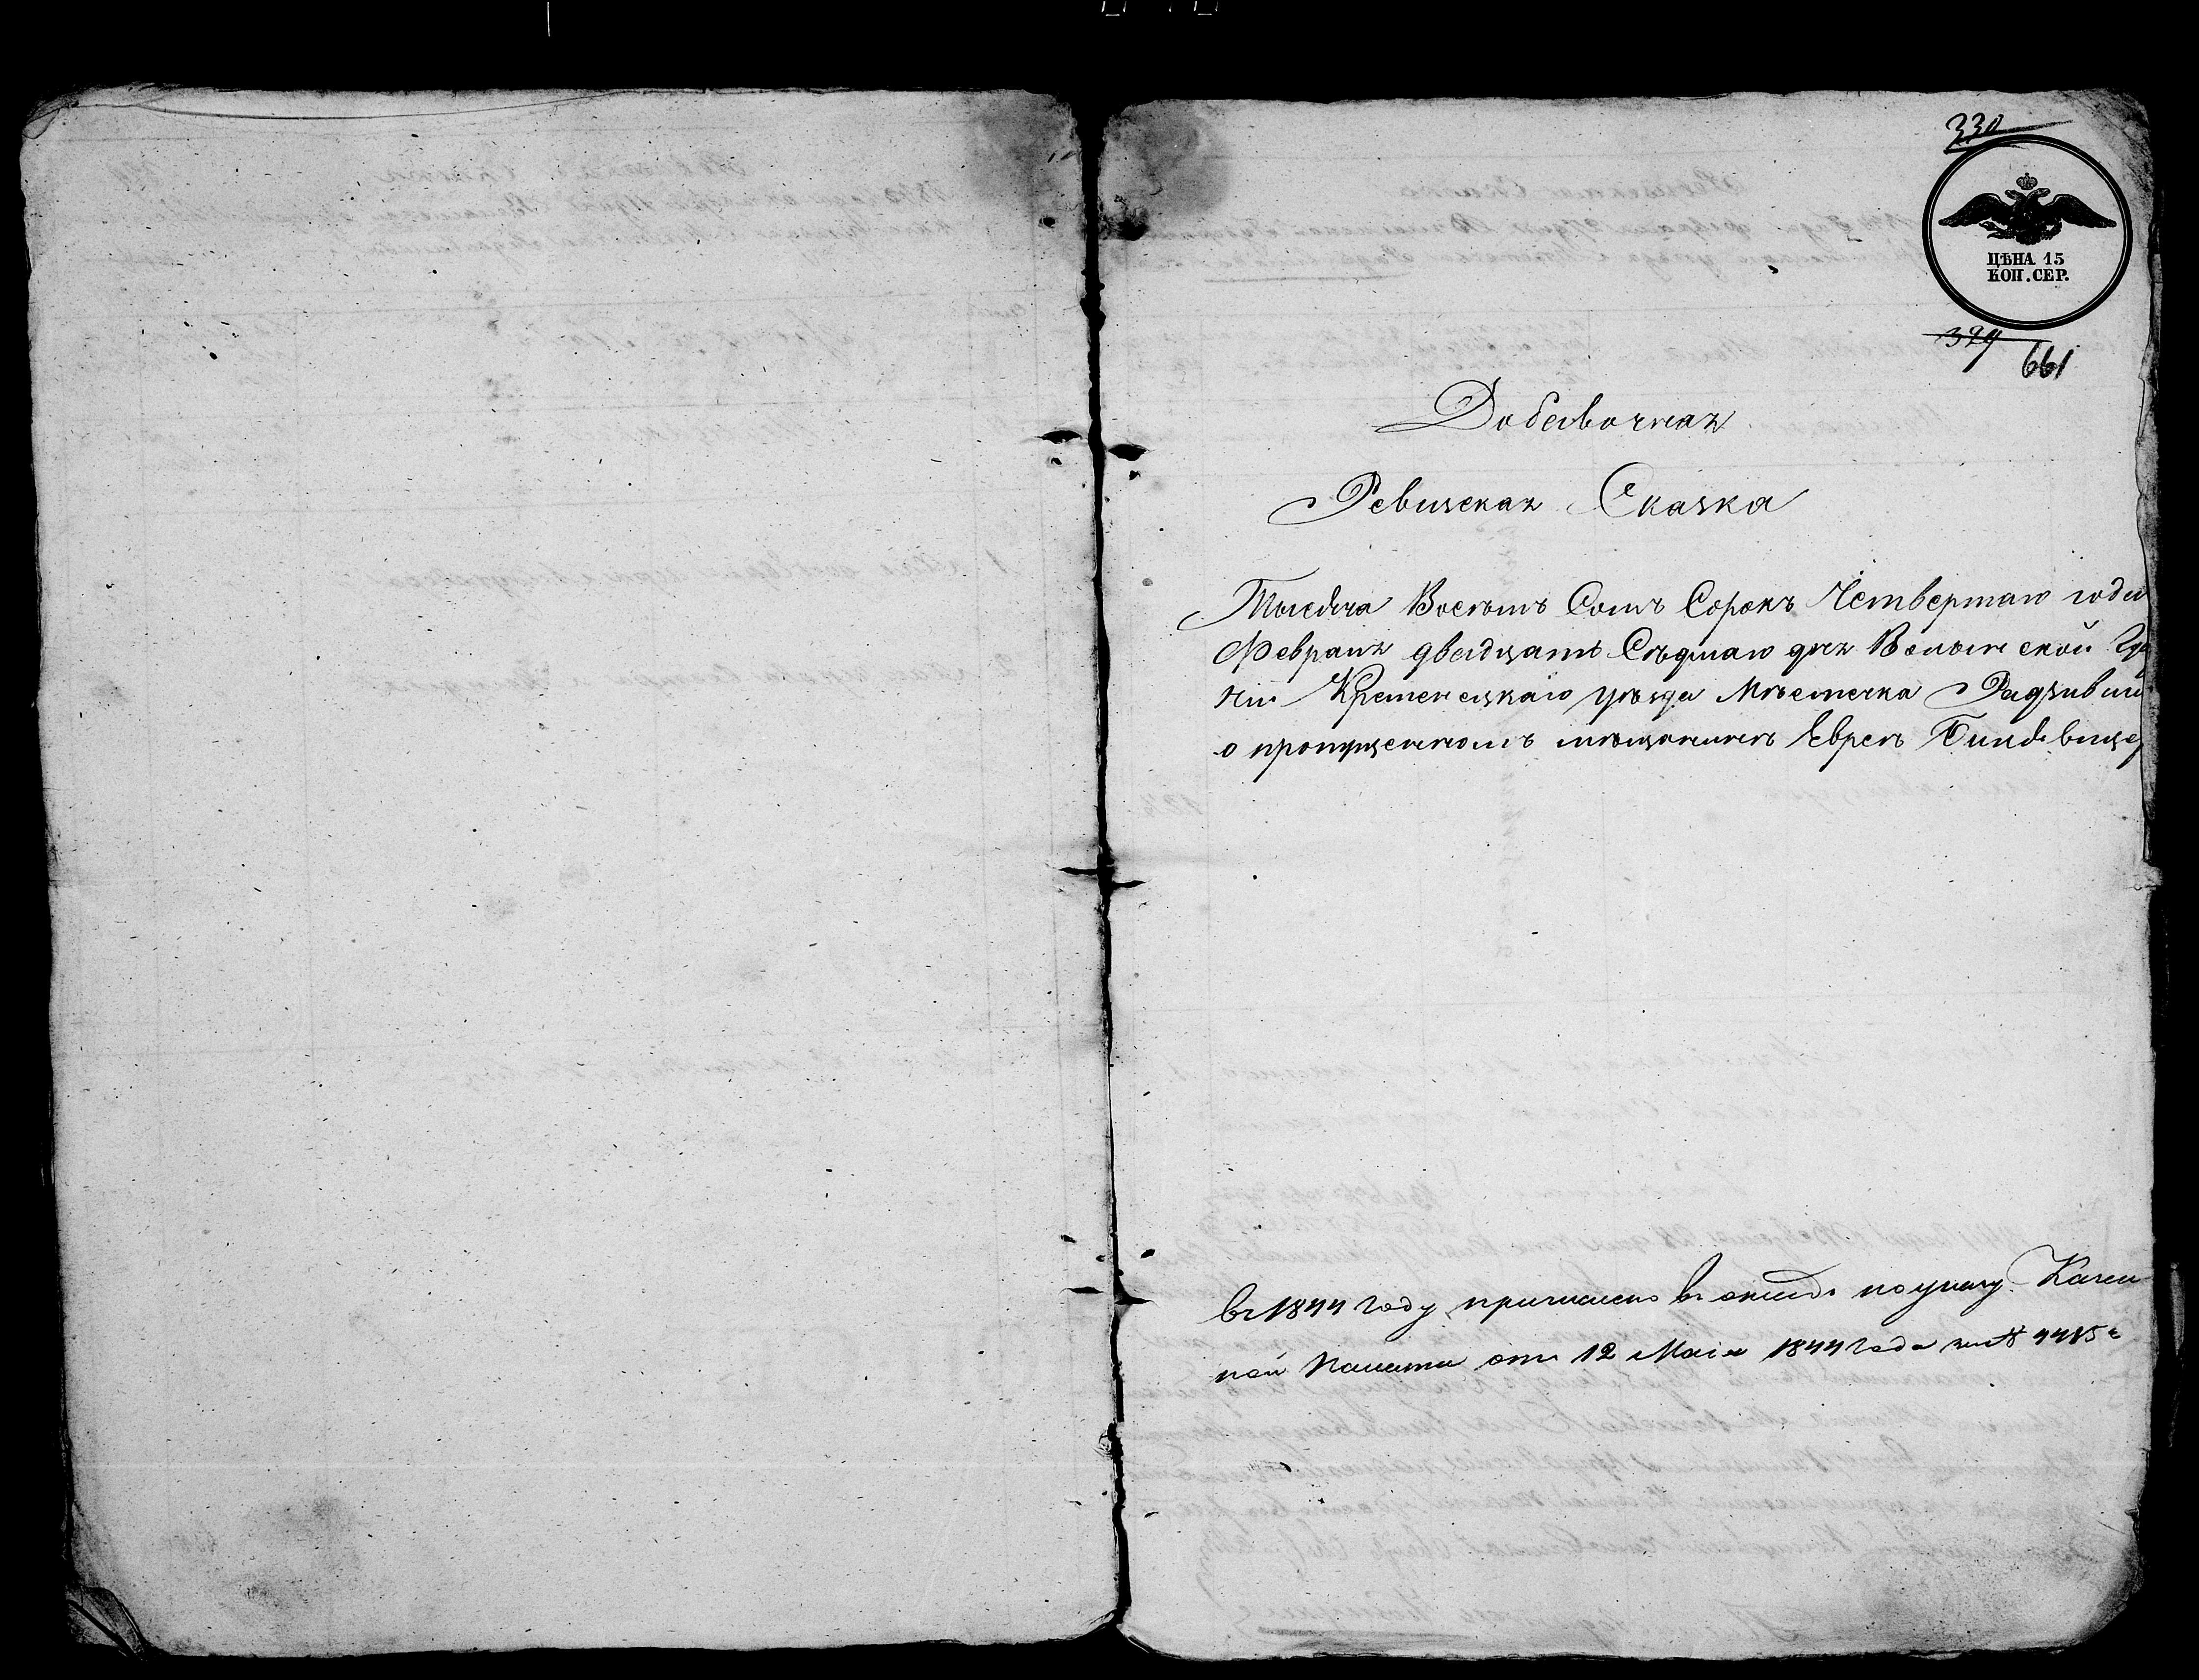 330
ЦѢНА 15
КОП. СЕР.
329
661
Добавочная
Ревизская Сказка
Тысяча Восемъ Сотъ Сорокъ Четвертаго года
Февраля двадцать Седмаго дня Волынской Гу
ніи Кременецкаго уѣзда Мѣстечка Радзивил
о пропущенномъ мѣщанинѣ Евреѣ
въ 1844 году причислено въ окладъ по указу Казен
ной Палаты отъ 12 Маія 1844 года за №